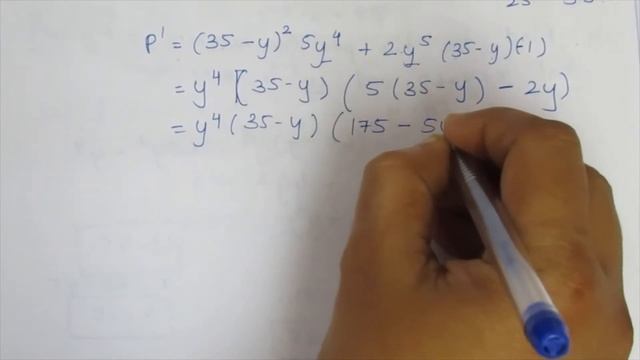 P' = (35 - y)² 5y⁴ + 2y⁵ (35 - y)(-1)
= y⁴ [(35 - y) (5(35 - y) - 2y)
= y⁴ (35 - y) (175 - 5y